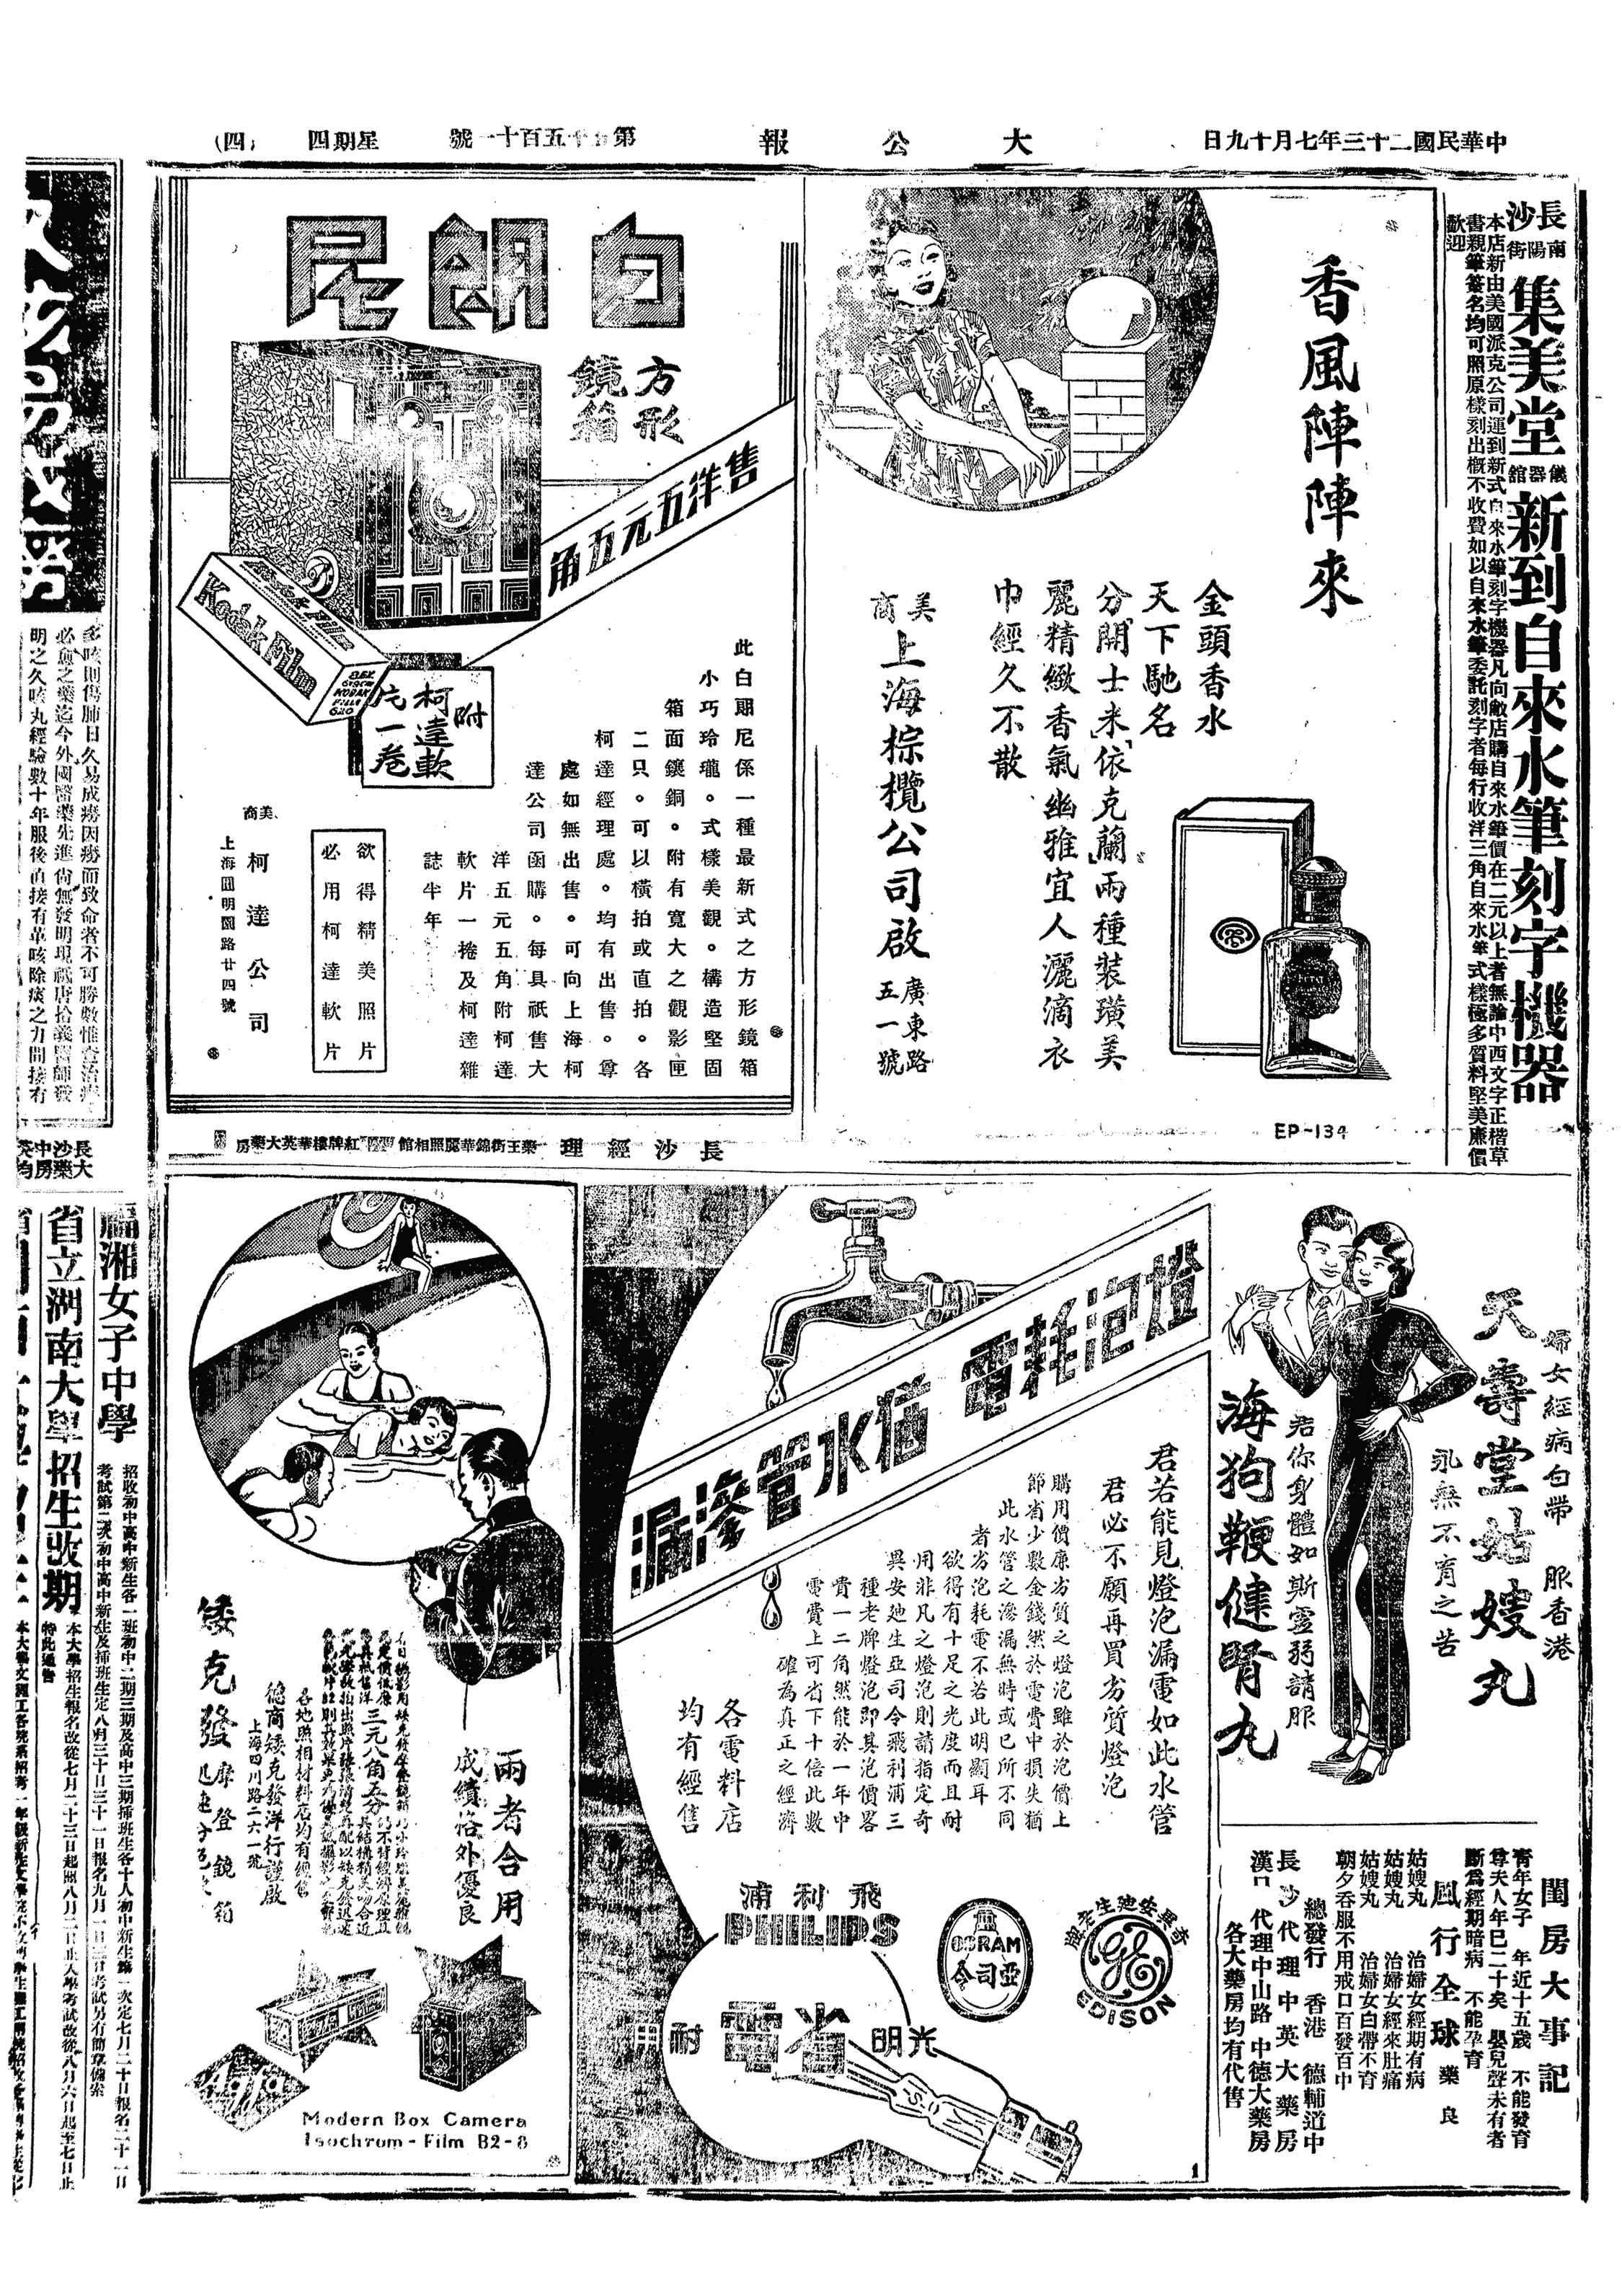 中華民國二十三年七月十九日
大公報
星期四
(四)
長沙
南陽街
集美堂
儀器舘
新到自來水筆刻字機器
本店新由美國派克公司運到新式自來水筆刻字機器凡向敝店購自來水筆價在二元以上者無論中西文字正楷草
書親筆簽名均可照原樣刻出概不收費如以自來水筆委託刻字者每行收洋三角自來水筆式樣極多質料堅美廉價
歡迎
香風陣陣來
金頭香水
天下馳名
分「開士米」「依克蘭」兩種裝璜美
麗精緻香氣幽雅宜人灑滴衣
巾經久不散
美商
上海棕欖公司啟
廣東路
五一號
EP-134
白朗尼
方形
鏡箱
售洋五元五角
Kodak Film
附
柯達軟
片一卷
此白朗尼係一種最新式之方形鏡箱
小巧玲瓏。式樣美觀。構造堅固
箱面鑲銅。附有寬大之觀影匣
二只。可以橫拍或直拍。各
柯達經理處。均有出售。尊
處如無出售。可向上海柯
達公司函購。每具祇售大
洋五元五角附柯達
軟片一捲及柯達雜
誌半年
欲得精美照片
必用柯達軟片
美商
柯達公司
上海圓明園路廿四號
長沙經理
藥王街錦華麗照相館
紅牌樓華英大藥房
婦女經病白帶 服香港
天壽堂姑嫂丸
永無不育之苦
若你身體如斯孱弱請服
海狗鞭健腎丸
閨房大事記
青年女子 年近十五歲 不能發育
尊夫人年已二十矣 嬰兒聲未有者
斷為經期暗病 不能孕育
風行全球 藥良
姑嫂丸 治婦女經期有病
姑嫂丸 治婦女經來肚痛
姑嫂丸 治婦女白帶不育
朝夕吞服不用戒口百發百中
總發行 香港 德輔道中
長沙代理中英大藥房
漢口代理中山路中德大藥房
各大藥房均有代售
燈泡耗電猶水管滲漏
君若能見燈泡漏電如此水管
君必不願再買劣質燈泡
購用價廉劣質之燈泡雖於泡價上
節省少數金錢然於電費中損失猶
此水管之滲漏無時或已所不同
者劣泡耗電不若此明顯耳
欲得有十足之光度而且耐
用非凡之燈泡則請指定奇
異安迪生亞司令飛利浦三
種老牌燈泡即其泡價畧
貴一二角然能於一年中
電費上可省下十倍此數
確為真正之經濟
各電料店
均有經售
飛利浦
PHILIPS
OSRAM
亞司令
奇異安迪生老牌
GE
EDISON
光明
省電
耐用
1
兩者合用
成績格外優良
矮克發
摩登鏡箱
德商矮克發洋行謹啟
上海四川路二六一號
Agfa
Modern Box Camera
Isochrom-Film B2-8
多咳則傷肺日久易成癆因癆而致命者不可勝數惟查治癆
必愈之藥迄今外國醫藥先進尚無發明現祇唐拾義醫師發
明之久咳丸經驗數十年服後直接有革咳除痰之力間接有
福湘女子中學
招收初中高中新生各一班初中二期三期及高中三期插班生各十人初中新生第一次定七月二十日報名二十一日
考試第二次初中高中新生及插班生定八月三十日三十一日報名九月一日二日考試另有簡章備索
省立湖南大學招生改期
本大學招生報名改從七月二十三日起照八月二日止入學考試改從八月六日起至七日止
特此通告